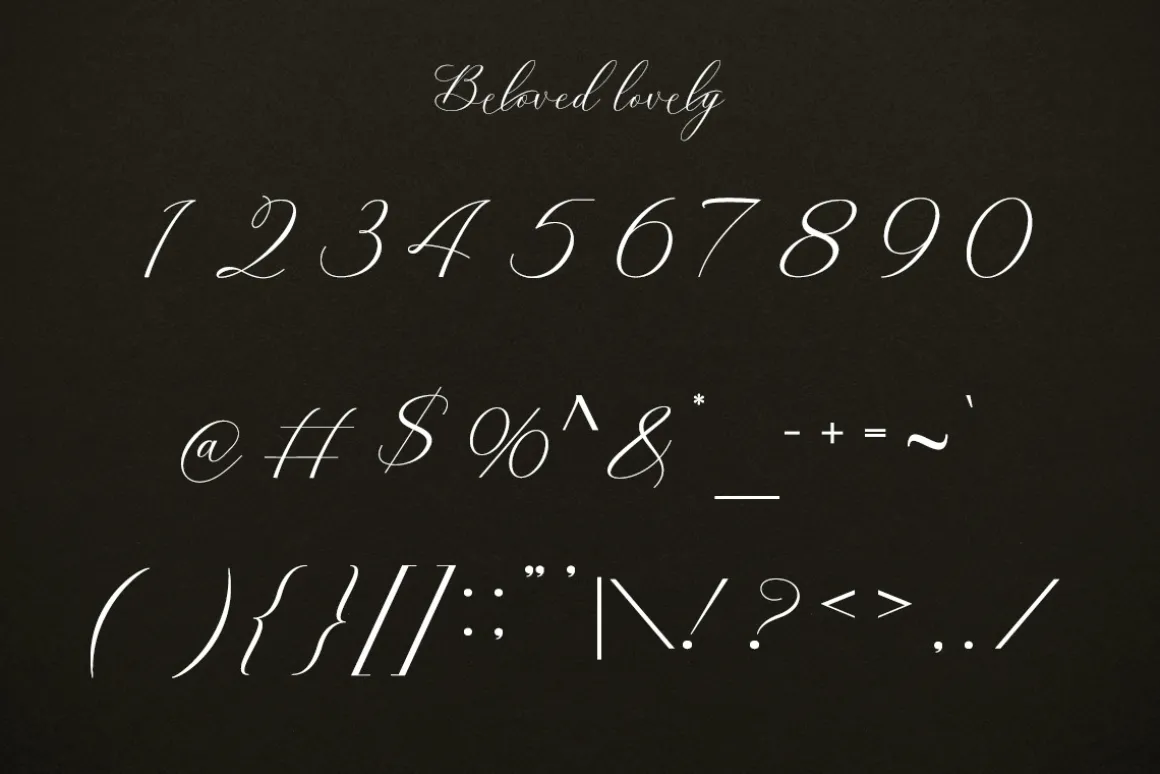 Beloved lovely
1 2 3 4 5 6 7 8 9 0
@ # $ % ^ & * _ - + = ~ `
( ) { } [ ] : ; ” ’ | \ ! ? < > , . /